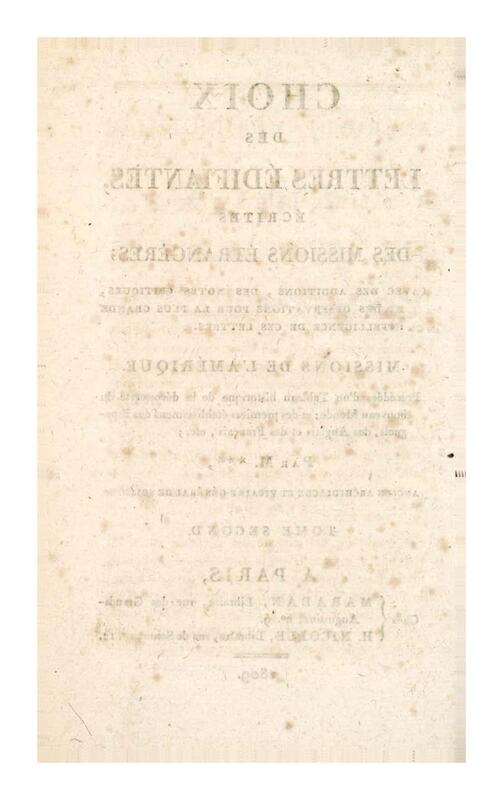 CHOIX
DES
LETTRES ÉDIFIANTES,
ÉCRITES
DES MISSIONS ÉTRANGÈRES;
AVEC DES ADDITIONS, DES NOTES CRITIQUES,
ET DES OBSERVATIONS POUR LA PLUS GRANDE
INTELLIGENCE DE CES LETTRES.
MISSIONS DE L'AMÉRIQUE
Précédées d'un Tableau historique de la découverte du
Nouveau Monde; et des premiers établissemens des Espa-
gnols, des Anglais et des Français, etc.;
PAR M. ***,
ANCIEN ARCHIDIACRE ET VICAIRE GÉNÉRAL DE
TOME SECOND.
A PARIS,
MARADAN, Libraire, rue des Grands-
Augustins, n°. 9.
Chez
H. NICOLLE, Libraire, rue de Seine, n°. 12.
1809.